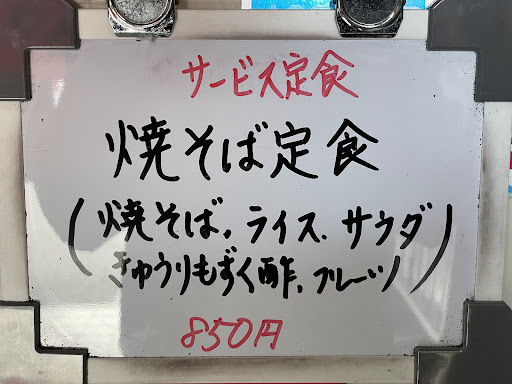 サービス定食
焼そば定食
(焼そば,ライス.サウダ
きゅうりもずく酢,フルーツ)
850円